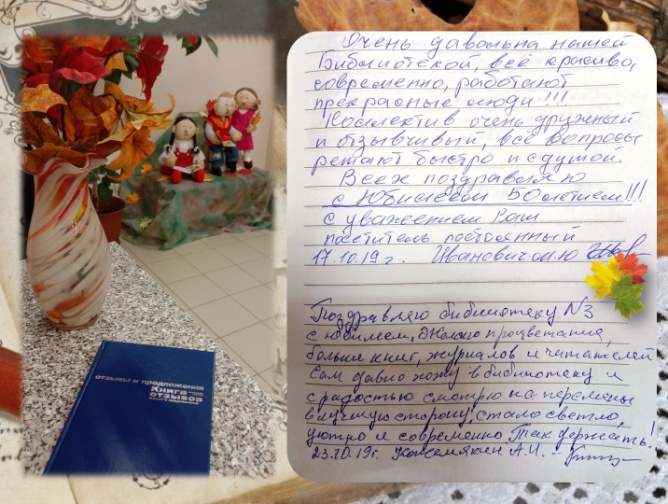 отзывы и предложения
Книга
отзывов
Очень давольна нашей
Библиотекой, всё красиво,
современно, работают
прекрасные люди!!!
Коллектив очень дружный
и отзывчивый, все вопросы
решают быстро и с душой.
Всех поздравляю
с Юбилеем 50 летием!!!
с уважением Ваш
посетитель постоянный
17.10.19г.
Поздравляю библиотеку N3
с юбилеем, Желаю процветания,
больше книг, журналов и читателей
Сам давно хожу в библиотеку и
с радостью смотрю на перемены
в лучшую сторону, стало светло,
уютно и современно. Так держать!
23.10.19г. Кожемякин А.И.